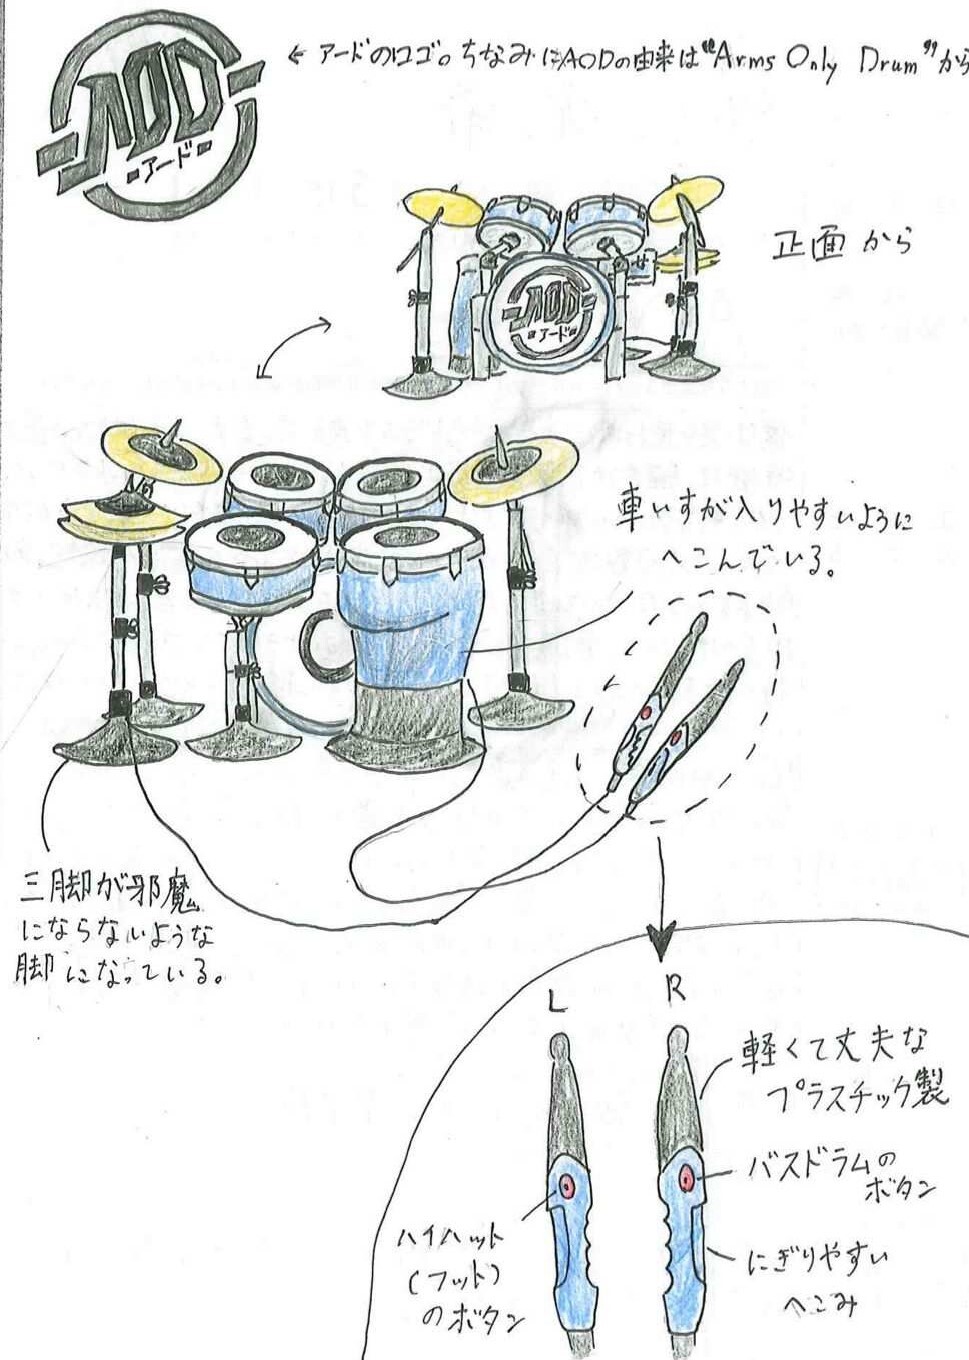 AOD
アード
← アードのロゴ。ちなみにAODの由来は"Arms Only Drum"から
正面から
AOD
アード
車いすが入りやすいように
へこんでいる。
三脚が邪魔
にならないような
脚になっている。
L
R
軽くて丈夫な
プラスチック製
バスドラムの
ボタン
ハイハット
(フット)
のボタン
にぎりやすい
へこみ